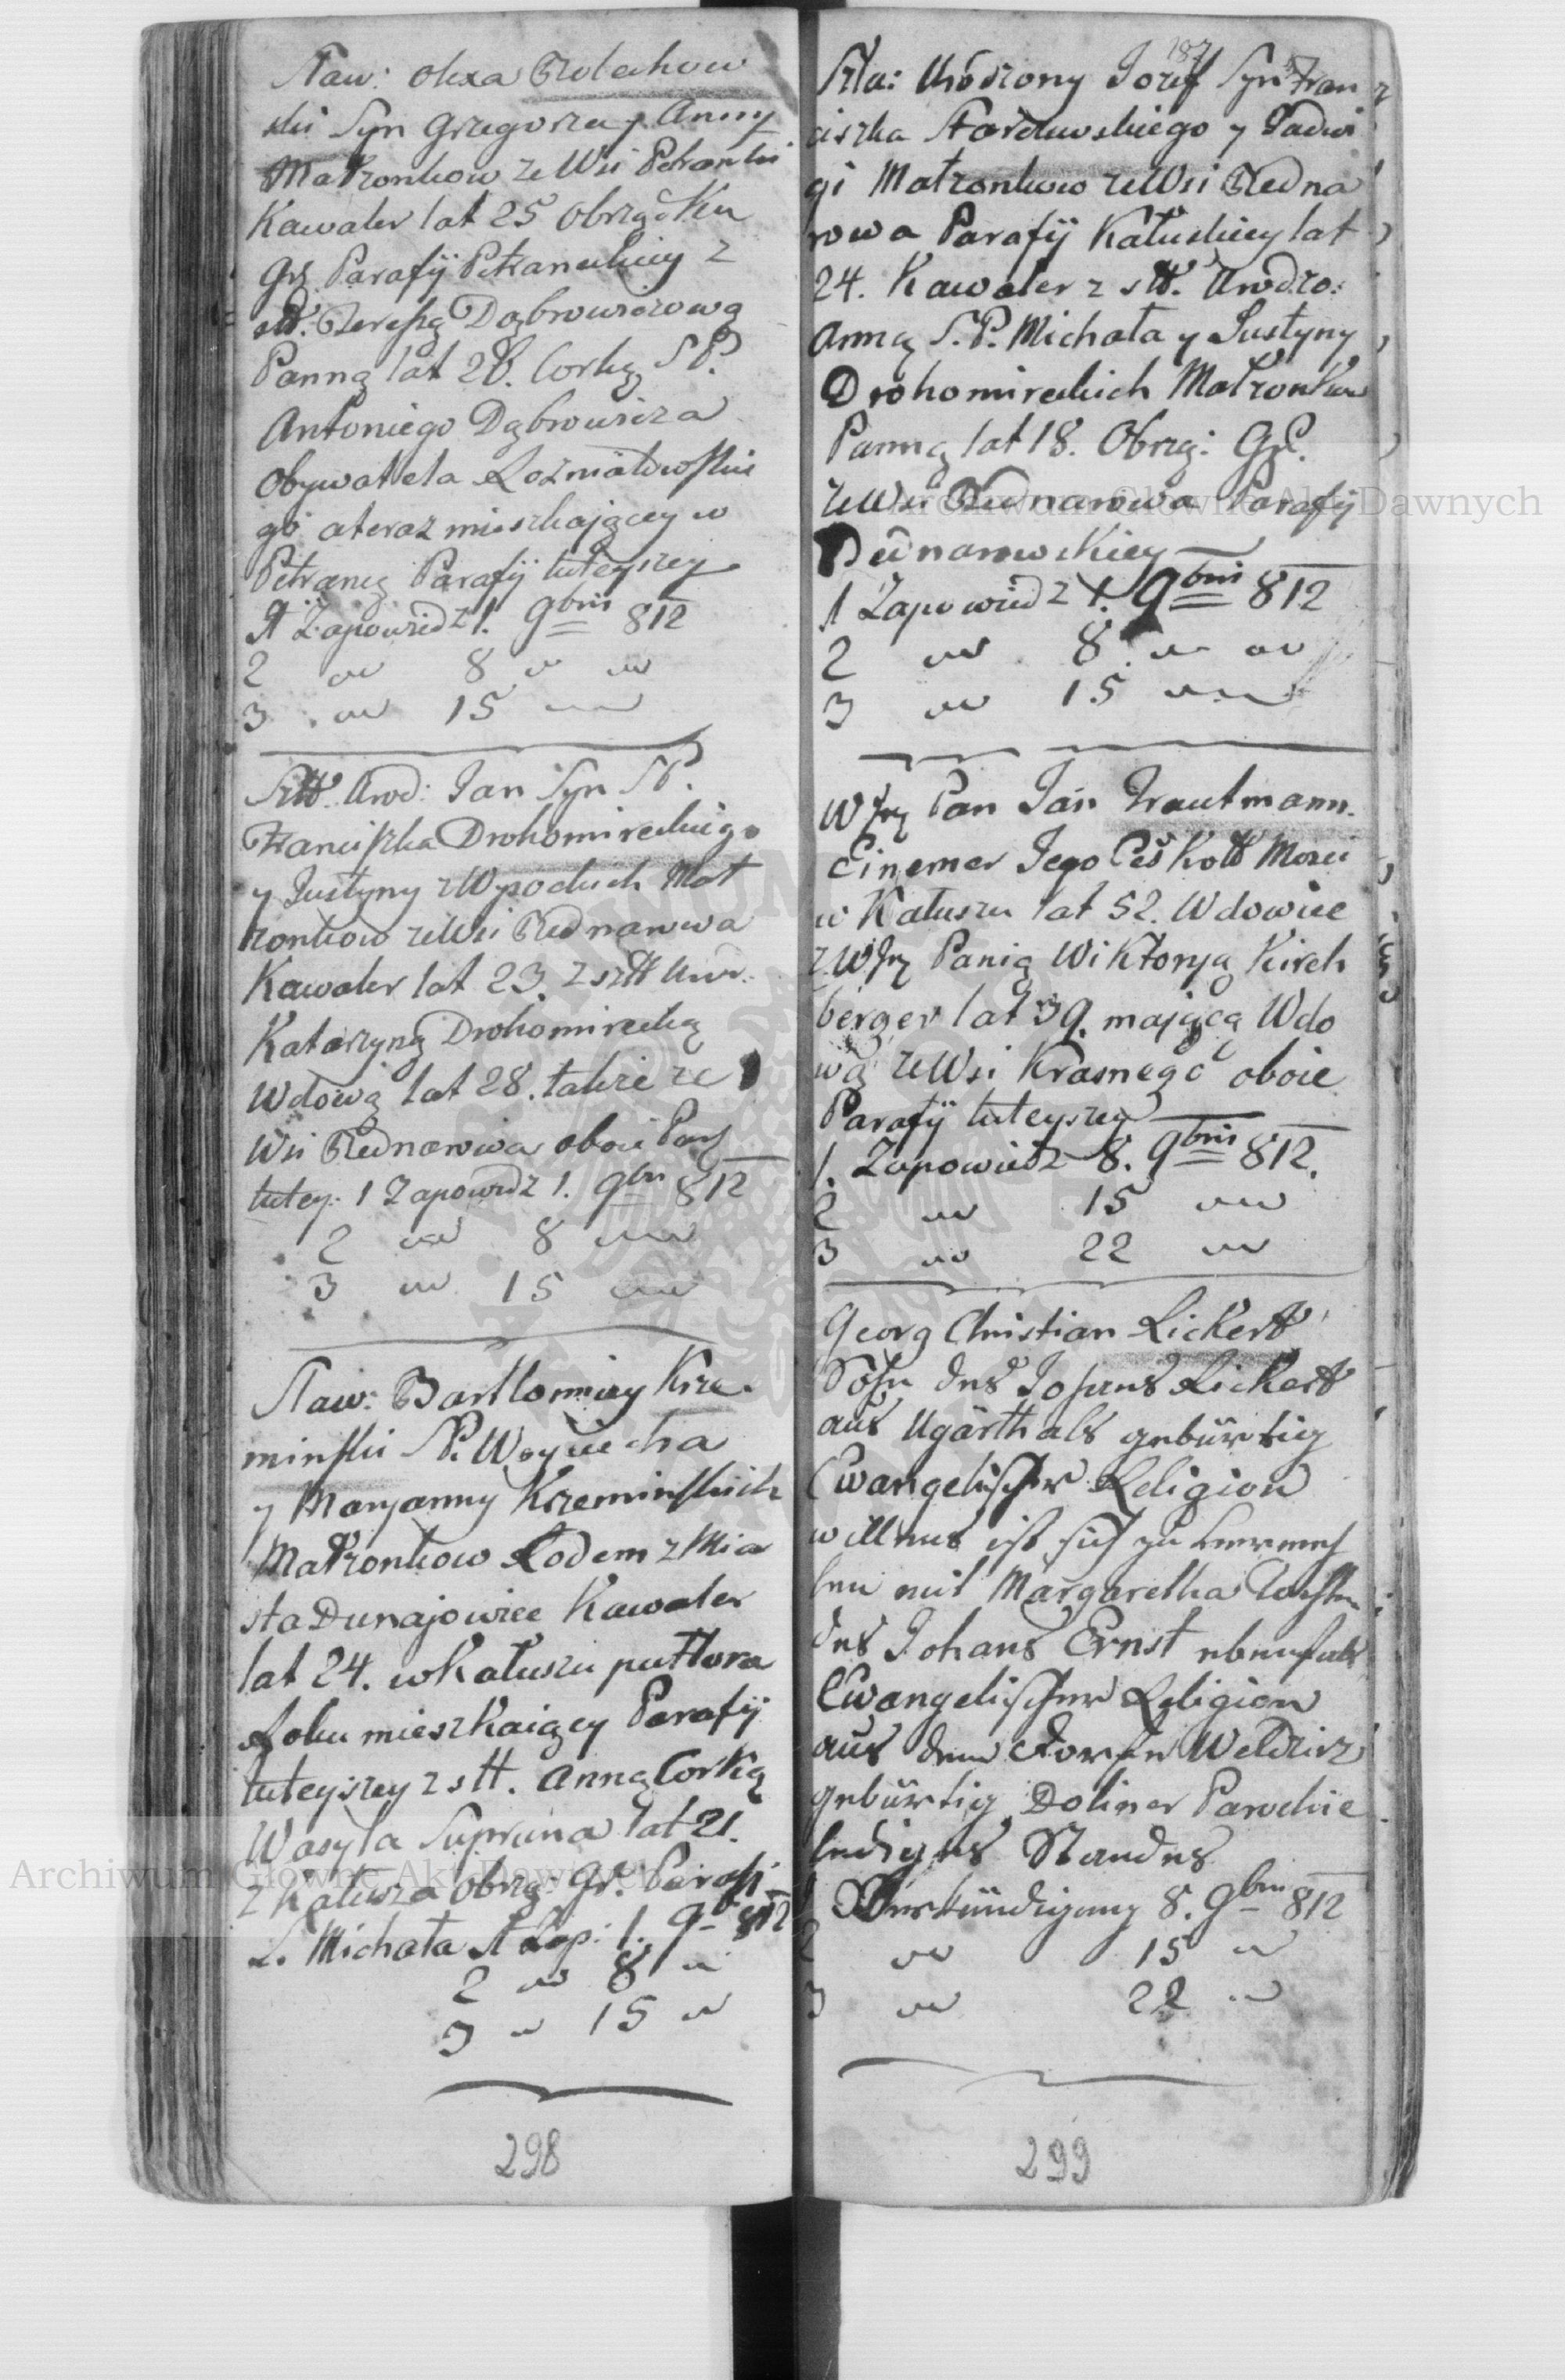 Staw: Olexa Bolechow
ski Syn Grzegorza y Anny
Małżonkow ze Wsi Petranki
Kawaler lat 25 Obrządku
Gr. Parafij Petraneckiey z
stt. Tereszą Dąbrowiczową
Panną lat 28. Corką S P.
Antoniego Dąbrowicza
Obywatela Rozniatowskie
go a teraz mieszkaiącey w
Petrancę Parafij tuteyszey
1 Zapowiedz 1. 9bris 812
2 " 8 " "
3 " 15 "
Sztt. Urod: Jan Syn S P.
Franciszka Drohomireckiego
y Justyny z Wysockich Mał
żonkow ze Wsi Bednarowa
Kawaler lat 23. z sztt Uro:
Katarzyną Drohomirecką
Wdową lat 28. takze ze
Wsi Bednarowa oboie Par
tutey: 1 Zapowidz 1. 9bri 812
2 " 8 "
3 " 15 "
Staw: Bartlomiey Krze
minski S P. Woyciecha
y Maryanny Krzeminskich
Małżonkow Rodem z Mia
sta Dunajowiec Kawaler
lat 24. w Kałuszu puttora
Roku mieszkaiący Parafij
tuteyszey z stt. Anną Corką
Wasyla Supruna lat 21.
z Kałusza Obrzą: Gr. Parafi
S. Michała 1 Zap: 1. 9b 812
2 " 8 "
3 " 15 "
298
187
Szla: Urodzony Jozef Syn Fran
ciszka Stordewskiego y Jadwi
gi Małzonkow ze Wsi Bedna
rowa Parafij Kałuskiey lat
24. Kawaler z stt. Urodzo:
Anną S. P. Michała y Justyny
Drohomireckich Małzonkow
Panną lat 18. Obrzą: Gr.
ze Wsi Bednarowa Parafij
Bednarowskiey
1 Zapowiedz 1. 9bris 812
2 " 8 " "
3 " 15 "
W Jmę Pan Jan Trautmann
Einemer Jego Ces Kott Mosci
w Kałuszu lat 52. Wdowiec
z W Jmę Panią Wiktoryą Kirch
berger lat 39. mającą Wdo
wą ze Wsi Krasnego oboie
Parafij tuteyszey
1. Zapowiedz 8. 9bris 812.
2 " 15 "
3 " 22 "
Georg Christian Rickert
Sohn des Johans Rickert
aus Ugarthals gebürtig
Ewangelischer Religion
willens ist sich zu vermeh
len mit Margaretha Tochter
des Johans Ernst ebenfals
Ewangelischer Religion
aus dem Dorfe Weldzirz
gebürtig Doliner Parochie
lediges Standes
1 Verkündigung 8. 9bri 812
2 " 15 "
3 " 22 "
299
Archiwum Główne Akt Dawnych
Archiwum Główne Akt Dawnych